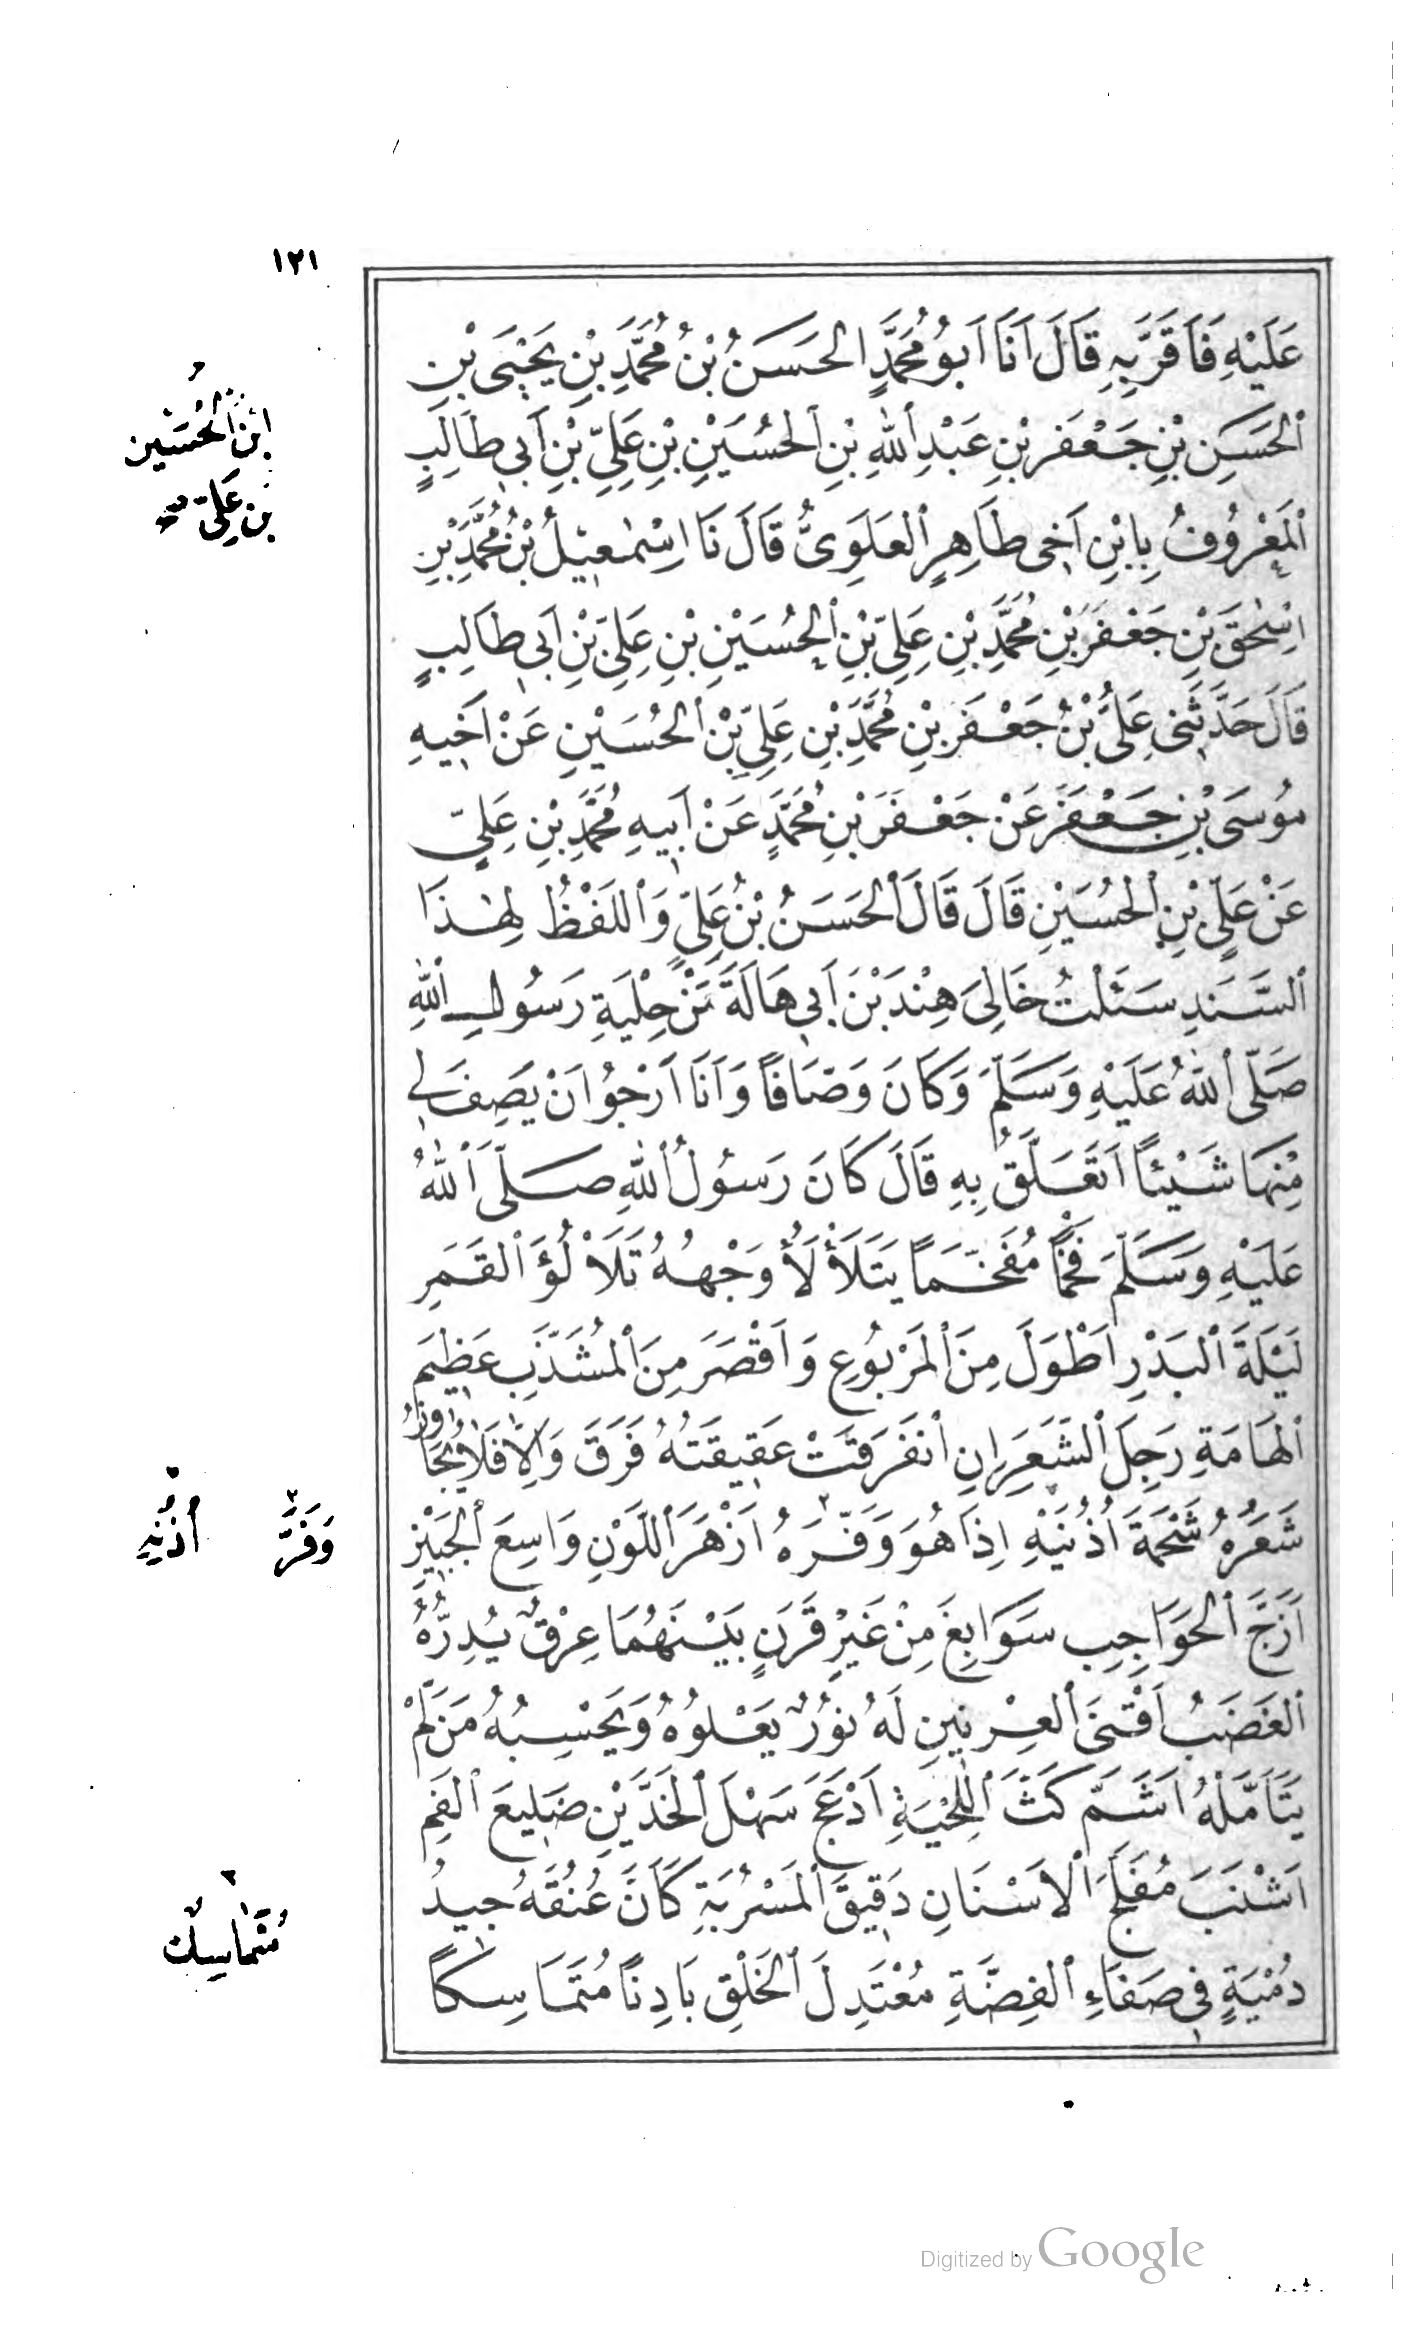 ١٢١
عَلَيْهِ فَاَقَرَّبِهِ قَالَ اَنَا اَبُو مُحَمَّدٍ الحَسَنُ بْنُ مُحَمَّدِ بْنِ يَحْيَى بْنِ
ٱلحَسَنِ بْنِ جَعْفَرِ بْنِ عَبْدِ ٱللهِ بْنِ ٱلحُسَيْنِ بْنِ عَلِيِّ بْنِ اَبِي طَالِبٍ
ٱلمَعْرُوفُ بِابْنِ اَخِى طَاهِرٍ ٱلعَلَوِىُّ قَالَ نَا اِسْمٰعِيْلُ بْنُ مُحَمَّدِ بْنِ
اِسْحٰقَ بْنِ جَعْفَرِ بْنِ مُحَمَّدِ بْنِ عَلِيِّ بْنِ ٱلحُسَيْنِ بْنِ عَلِيِّ بْنِ اَبِي طَالِبٍ
قَالَ حَدَّثَنِى عَلِىُّ بْنُ جَعْفَرِ بْنِ مُحَمَّدِ بْنِ عَلِيِّ بْنِ ٱلحُسَيْنِ عَنْ اَخِيهِ
مُوسَى بْنِ جَعْفَرٍ عَنْ جَعْفَرِ بْنِ مُحَمَّدٍ عَنْ اَبِيهِ مُحَمَّدِ بْنِ عَلِيٍّ
عَنْ عَلِيِّ بْنِ ٱلحُسَيْنِ قَالَ قَالَ ٱلحَسَنُ بْنُ عَلِيٍّ وَٱللَفْظُ لِهٰذَا
ٱلسَّنَدِ سَئَلْتُ خَالِىَ هِنْدَ بْنَ اَبِي هَالَةَ عَنْ حِلْيَةِ رَسُولِ ٱللهِ
صَلَّى ٱللهُ عَلَيْهِ وَسَلَّمَ وَكَانَ وَصَّافًا وَاَنَا اَرْجُو اَنْ يَصِفَ لِي
مِنْهَا شَيْئًا اَتَعَلَّقُ بِهِ قَالَ كَانَ رَسُولُ ٱللهِ صَلَّى ٱللهُ
عَلَيْهِ وَسَلَّمَ فَخْمًا مُفَخَّمًا يَتَلَأْلَأُ وَجْهُهُ تَلَأْلُؤَ ٱلقَمَرِ
لَيْلَةَ ٱلبَدْرِ اَطْوَلَ مِنَ ٱلمَرْبُوعِ وَاَقْصَرَ مِنَ ٱلمُشَذَّبِ عَظِيمَ
ٱلهَامَةِ رَجِلَ ٱلشَّعَرِ اِنِ ٱنْفَرَقَتْ عَقِيقَتُهُ فَرَقَ وَاِلَّا فَلَا يُجَاوِزُ
شَعَرُهُ شَحْمَةَ اُذُنَيْهِ اِذَا هُوَ وَفَّرَهُ اَزْهَرَ ٱللَوْنِ وَاسِعَ ٱلجَبِيْنِ
اَزَجَّ ٱلحَوَاجِبِ سَوَابِغَ مِنْ غَيْرِ قَرَنٍ بَيْنَهُمَا عِرْقٌ يُدِرُّهُ
ٱلغَضَبُ اَقْنَى ٱلعِرْنِينِ لَهُ نُورٌ يَعْلُوهُ وَيَحْسِبُهُ مَنْ لَمْ
يَتَأَمَّلْهُ اَشَمَّ كَثَّ ٱللِحْيَةِ اَدْعَجَ سَهْلَ ٱلخَدَّيْنِ ضَلِيعَ ٱلفَمِ
اَشْنَبَ مُفَلَّجَ ٱلاَسْنَانِ دَقِيقَ ٱلمَسْرُبَةِ كَاَنَّ عُنُقَهُ جِيدُ
دُمْيَةٍ فِي صَفَاءِ ٱلفِضَّةِ مُعْتَدِلَ ٱلخَلْقِ بَادِنًا مُتَمَاسِكًا
ابْنِ الحُسَيْنِ
بْنِ عَلِيّ
وَفَرَّ
اُذُنِهِ
مُتَمَاسِكٌ
Digitized by Google